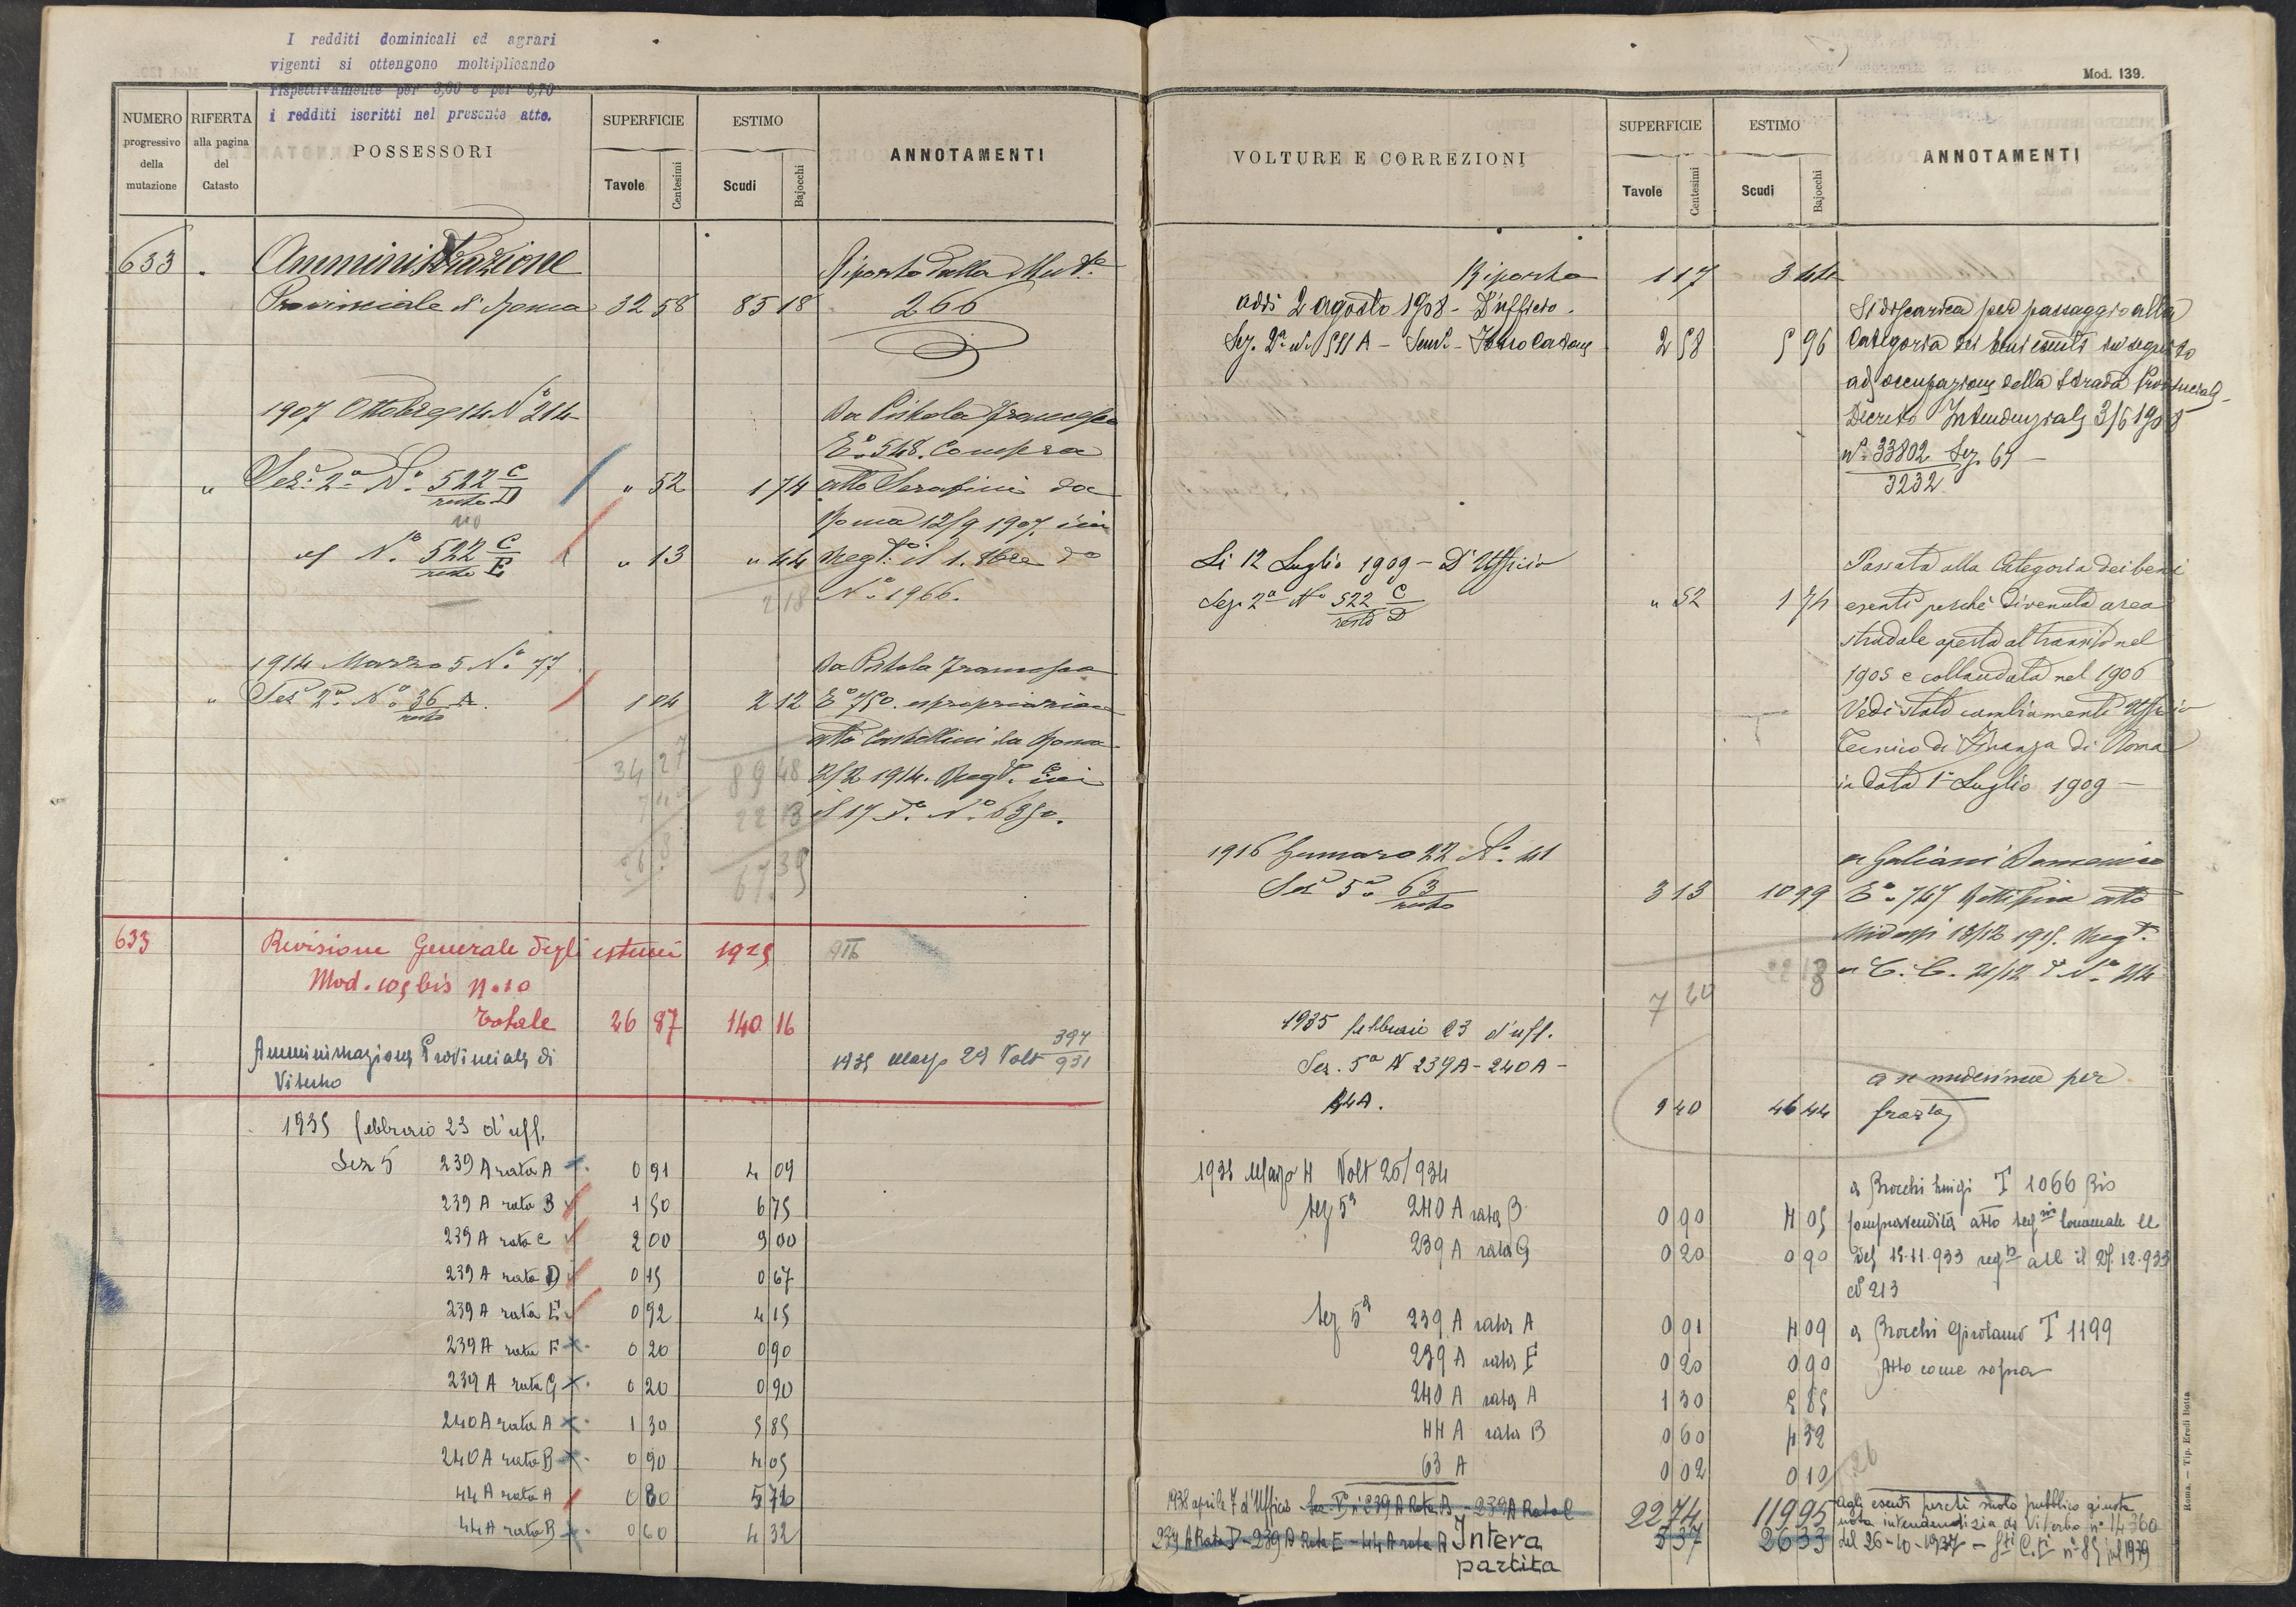 I redditi dominicali ed agrari
vigenti si ottengono moltiplicando
rispettivamente per 3,60 e per 6,70
i redditi iscritti nel presente atto.
NUMERO progressivo della mutazione
RIFERTA alla pagina del Catasto
POSSESSORI
SUPERFICIE
Tavole
Centesimi
ESTIMO
Scudi
Bajocchi
ANNOTAMENTI
633 Amministrazione Riporto dalla Mut.e
Provinciale di Roma 32 58 85 18 266
1907 Ottobre 14 N.o 214 Da Pistola Francesca
E.o 548. Compra
" Sez.e 2a N.o 522 C " 52 1 74 atto Serafini da
resto D
Roma 12/9 1907. ivi
" N.o 522 C " 13 " 44 Reg.to il 1. 8bre do
resto E
2 18 N.o 1966.
1914 Marzo 5 N.o 77 Da Pistola Francesca
" Sez 2a N.o 36 A 1 04 2 12 E.o 750. espropriazione
resto
atto Castellini da Roma
34 27 89 48 2/2 1914. Reg.to ivi
22 13 il 17 do. N.o 6350.
67 35
633 Revisione Generale degli estimi 1925 976
Mod. 105 bis N. 10
Totale 26 87 140 16
Amministrazione Provinciale di 1935 Marzo 29 Volt 397/931
Viterbo
1935 febbraio 23 d'uff.
Sez 5 239 A rata A 0 91 4 09
239 A rata B 1 50 6 75
239 A rata C 2 00 9 00
239 A rata D 0 15 0 67
239 A rata E 0 92 4 15
239 A rata F 0 20 0 90
239 A rata G 0 20 0 90
240 A rata A 1 30 5 85
240 A rata B 0 90 4 05
44 A rata A 0 80 5 76
44 A rata B 0 60 4 32
Mod. 139.
VOLTURE E CORREZIONI
SUPERFICIE
Tavole
Centesimi
ESTIMO
Scudi
Bajocchi
ANNOTAMENTI
Riporto 117 344
addì 2 agosto 1908 - D'ufficio. Si discarica per passaggio alla
Sez. 2a n. 511 A - Sem.o 2 58 5 96 Categoria dei beni esenti in seguito
ad occupazione della Strada Provinciale
Decreto Intendenziale 3/6 1908
n.o 33802 Sez. 6a
3232
Li 12 Luglio 1909 - D'Ufficio Passata alla Categoria dei beni
Sez. 2a N.o 522 C " 52 1 74 esenti perché divenuta area
resto D
stradale aperta al transito nel
1905 e collaudata nel 1906
Vedi stato cambiamenti Ufficio
Tecnico di Finanza di Roma
in data 1o Luglio 1909 -
1916 Gennaro 22 N.o 41 a Galiani Domenico
Sez 5a 63 3 13 10 99 E.o 767 Rettifica atto
resto
18/12 1915. Reg.to
22 18 a C. C. 21/12 do N.o 214
7 20
1935 febbraio 23 d'uff.
Sez. 5a N 239A - 240A - a se medesima per
44A. 9 40 46 44 fraz.to
1935 Marzo 4 Volt 26/934 a Brocchi Luigi T 1066 Bis
Sez 5a 240 A rata B 0 90 4 05 Compravendita atto
239 A rata G 0 20 0 90 del 15.11.933 reg.to il 27.12.933
N 213
Sez 5a 239 A rata A 0 91 4 09 a Brocchi Girolamo T 1199
239 A rata F 0 20 0 90 Atto come sopra
240 A rata A 1 30 5 85
44 A rata B 0 60 4 32
63 A 0 02 0 10
1938 aprile 7 d'Ufficio Sez. 5a n. 239 A Rata B - 239 A Rata C 22 74 119 95 Agli esenti perché suolo pubblico giusta
239 A Rata D - 239 A Rata E - 44 A rata A Intera 5 37 26 33 nota intendendizia di Viterbo n. 14360
partita del 26-10-1937
Roma. — Tip. Eredi Botta